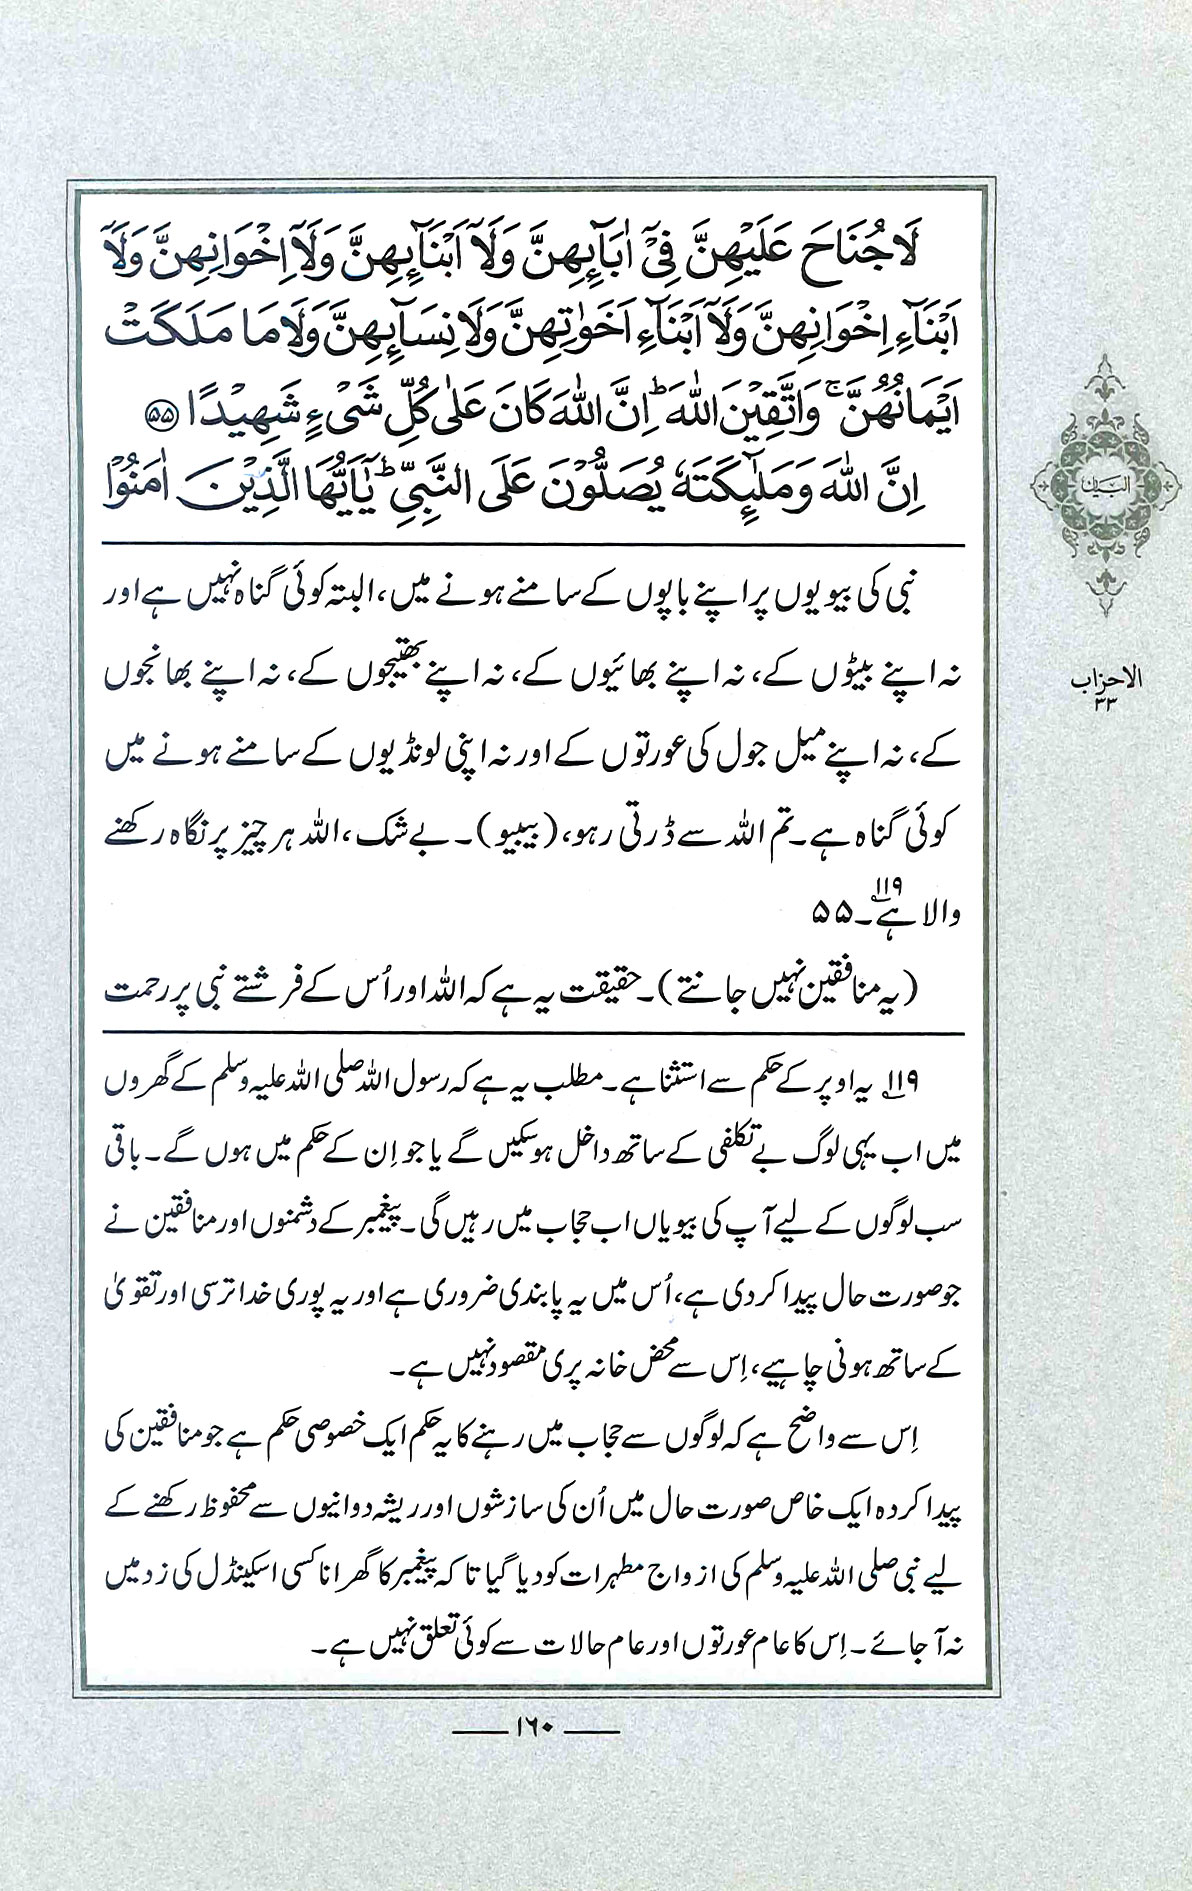 لَا جُنَاحَ عَلَيْهِنَّ فِيْٓ اٰبَآئِهِنَّ وَلَآ اَبْنَآئِهِنَّ وَلَآ اِخْوَانِهِنَّ وَلَآ
اَبْنَآءِ اِخْوَانِهِنَّ وَلَآ اَبْنَآءِ اَخَوٰتِهِنَّ وَلَا نِسَآئِهِنَّ وَلَا مَا مَلَكَتْ
اَيْمَانُهُنَّ ۚ وَاتَّقِيْنَ اللّٰهَ ؕ اِنَّ اللّٰهَ كَانَ عَلٰى كُلِّ شَيْءٍ شَهِيْدًا ﴿۵۵﴾
اِنَّ اللّٰهَ وَمَلٰٓئِكَتَهٗ يُصَلُّوْنَ عَلَى النَّبِيِّ ؕ يٰٓاَيُّهَا الَّذِيْنَ اٰمَنُوْا
البیان
الاحزاب
۳۳
نبی کی بیویوں پر اپنے باپوں کے سامنے ہونے میں، البتہ کوئی گناہ نہیں ہے اور
نہ اپنے بیٹوں کے، نہ اپنے بھائیوں کے، نہ اپنے بھتیجوں کے، نہ اپنے بھانجوں
کے، نہ اپنے میل جول کی عورتوں کے اور نہ اپنی لونڈیوں کے سامنے ہونے میں
کوئی گناہ ہے۔ تم اللہ سے ڈرتی رہو، (بیبیو)۔ بے شک، اللہ ہر چیز پر نگاہ رکھنے
والا ہے۱۱۹۔ ۵۵
(یہ منافقین نہیں جانتے)۔ حقیقت یہ ہے کہ اللہ اور اُس کے فرشتے نبی پر رحمت
۱۱۹ یہ اوپر کے حکم سے استثنا ہے۔ مطلب یہ ہے کہ رسول اللہ صلی اللہ علیہ وسلم کے گھروں
میں اب یہی لوگ بے تکلفی کے ساتھ داخل ہو سکیں گے یا جو اِن کے حکم میں ہوں گے۔ باقی
سب لوگوں کے لیے آپ کی بیویاں اب حجاب میں رہیں گی۔ پیغمبر کے دشمنوں اور منافقین نے
جو صورت حال پیدا کر دی ہے، اُس میں یہ پابندی ضروری ہے اور یہ پوری خدا ترسی اور تقویٰ
کے ساتھ ہونی چاہیے، اِس سے محض خانہ پری مقصود نہیں ہے۔
اِس سے واضح ہے کہ لوگوں سے حجاب میں رہنے کا یہ حکم ایک خصوصی حکم ہے جو منافقین کی
پیدا کردہ ایک خاص صورت حال میں اُن کی سازشوں اور ریشہ دوانیوں سے محفوظ رکھنے کے
لیے نبی صلی اللہ علیہ وسلم کی ازواج مطہرات کو دیا گیا تاکہ پیغمبر کا گھرانا کسی اسکینڈل کی زد میں
نہ آجائے۔ اِس کا عام عورتوں اور عام حالات سے کوئی تعلق نہیں ہے۔
۱۶۰